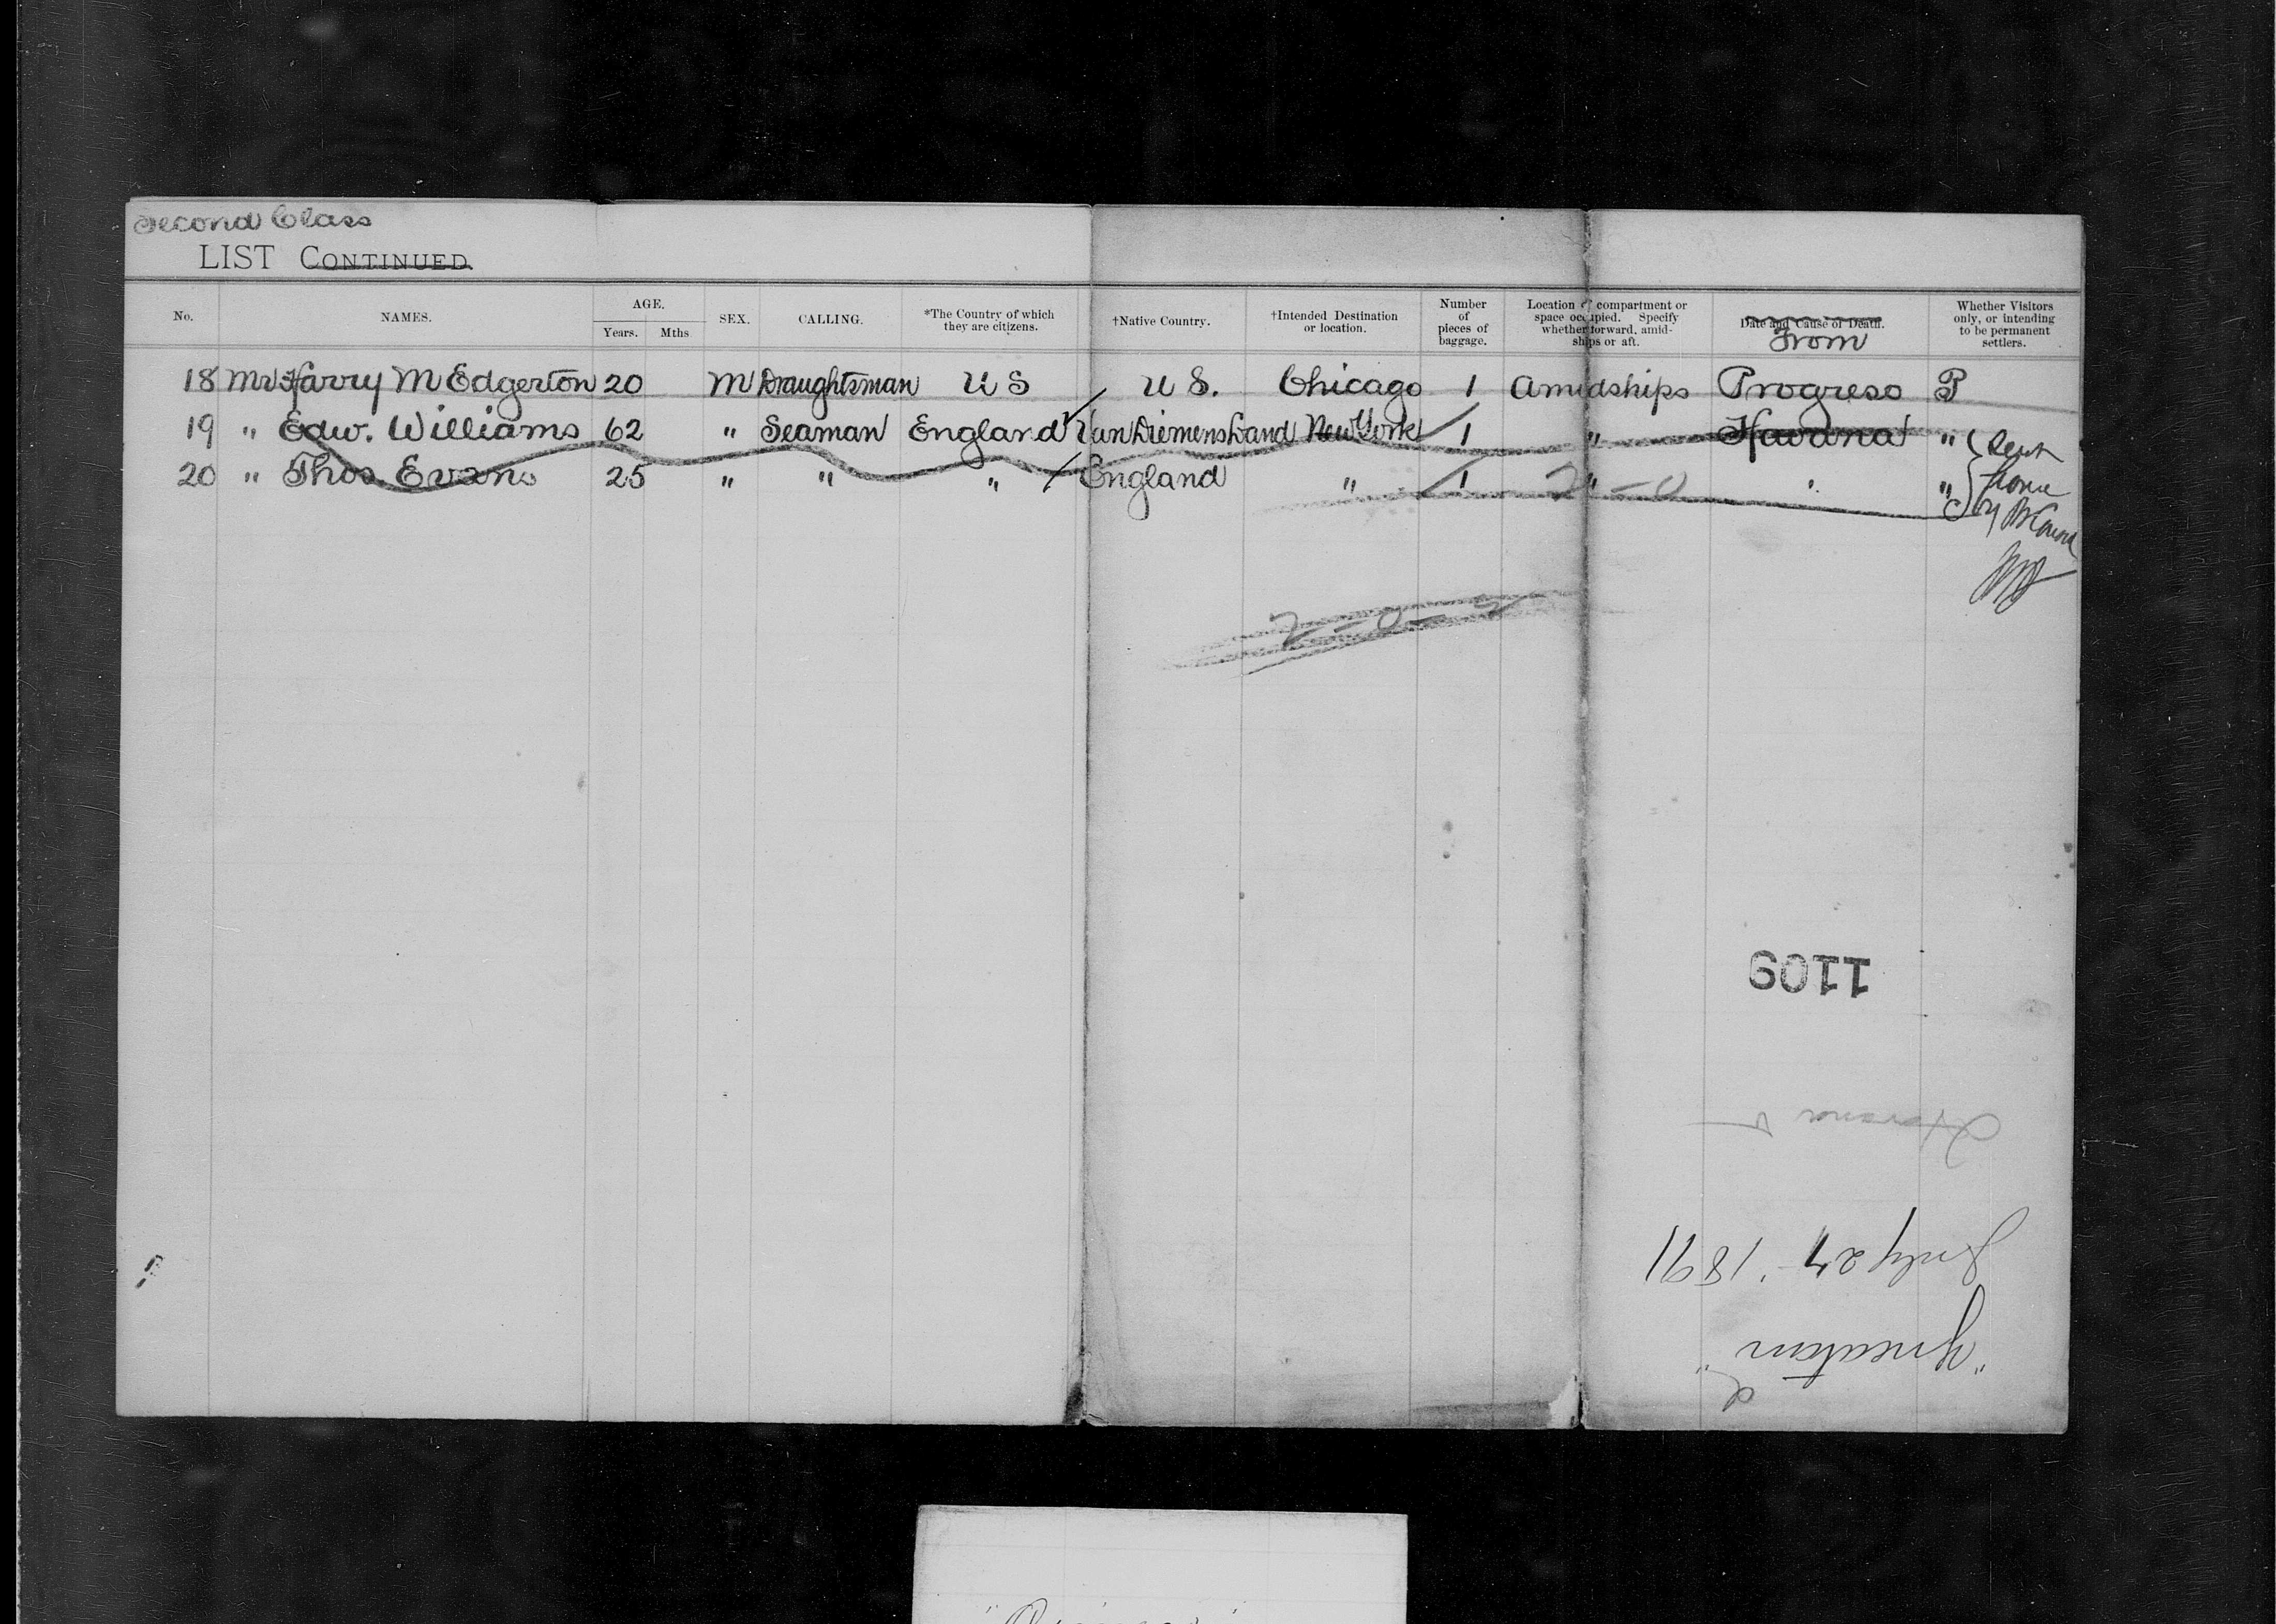 Second Class
LIST CONTINUED.
No. NAMES. AGE. Years. Mths SEX. CALLING. *The Country of which they are citizens. †Native Country. †Intended Destination or location. Number of pieces of baggage. Location of compartment or space occupied. Specify whether forward, amidships or aft. Date and Cause of Death. From Whether Visitors only, or intending to be permanent settlers.
18 Mr Harry M Edgerton 20 M Draughtsman U S U S. Chicago 1 Amidships Progreso P
19 " Edw. Williams 62 " Seaman England Van Diemens Land New York 1 " Havana "
20 " Thos. Evans 25 " " " England " 1 " " "
Sent
home
by B Consul
2-0
2-0-2
1109
Havana
July 27. 1891
"Yucatan"